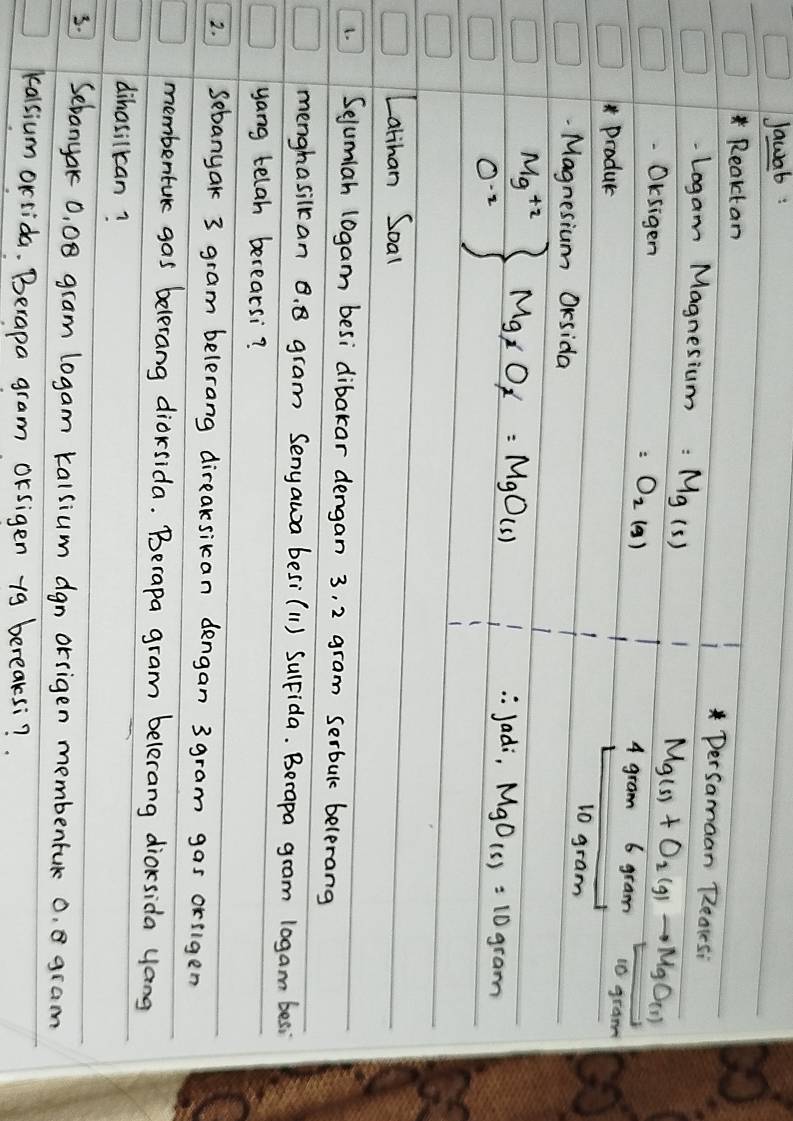 Jawab :
* Reaktan
- Logam Magnesium : Mg (s)
- Oksigen : O2 (g)
* Produk
- Magnesium Oksida
Mg+2
O-2
} Mg2 O2 = MgO(s)
* Persamaan Reaksi
Mg(s) + O2 (g) → MgO(s)
4 gram 6 gram 10 gram
10 gram
∴ Jadi, MgO(s) = 10 gram
Latihan Soal
1. Sejumlah logam besi dibakar dengan 3,2 gram serbuk belerang
menghasilkan 8.8 gram senyawa besi (II) sulfida. Berapa gram logam besi
yang telah bereaksi?
2. Sebanyak 3 gram belerang direaksikan dengan 3 gram gas oksigen
membentuk gas belerang dioksida. Berapa gram belerang dioksida yang
dihasilkan?
3. Sebanyak 0,08 gram logam kalsium dgn oksigen membentuk 0,8 gram
kalsium oksida. Berapa gram oksigen yg bereaksi?.